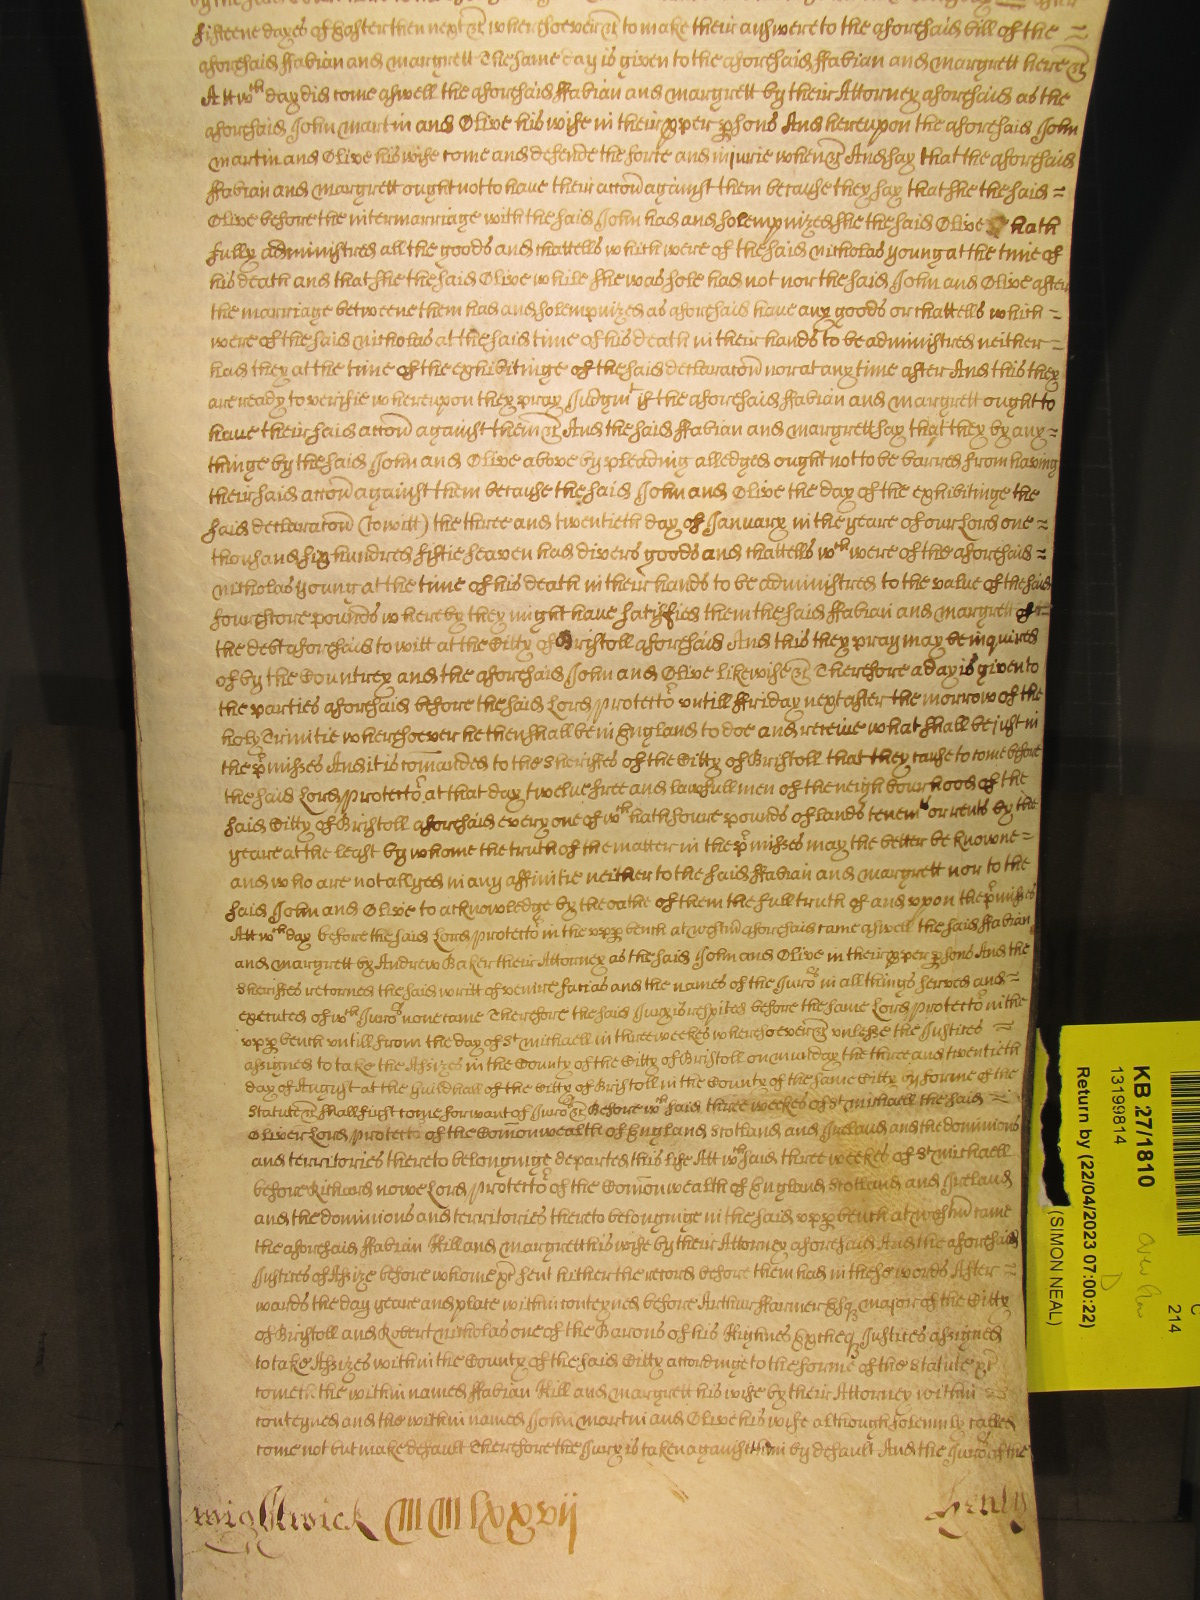 fifteene dayes of Easter then next &c wheresoever &c to make their answere to the aforesaid bill of the =
aforesaid ffabian and margrett The same day is given to the aforesaid ffabian and margrett here &c
Att wch day did come aswell the aforesaid ffabian and margrett by their Attorney aforesaid as the
aforesaid John martin and Olive his wife in their pper psons And hereupon the aforesaid John
martin and Olive his wife come and defende the force and iniurie when &c And say that the aforesaid
ffabian and margrett ought not to have their accon against them because they say that she the said =
Olive before the intermarriage with the said John had and solempnized she the said Olive hath
fully administred all the goods and chattells which were of the said nicholas young at the time of
his death and that she the said Olive while she was sole had not nor the said John and Olive after
the marriage betweene them had and solempnized as aforesaid have any goods or chattells which =
were of the said nicholas at the said time of his death in their hands to be administred neither =
had they at the time of the exhibitinge of the said declaracon nor at any time after And this they
are ready to verifie whereupon they pray Judgmt if the aforesaid ffabian and margrett ought to
have their said accon against them &c And the said ffabian and margrett say that they by any =
thinge by the said John and Olive above by pleading alledged ought not to be barred from having
their said accon against them because the said John and Olive the day of the exhibitinge the
said declaracon (to witt) the three and twentieth day of January in the yeare of our Lord one =
thousand six hundred fiftie seaven had divers goods and chattells wch were of the aforesaid =
nicholas young at the time of his death in their hands to be administred to the value of the said
fourscore pounds whereby they might have satisfied them the said ffabian and margrett of =
the debt aforesaid to witt at the Citty of Bristoll aforesaid And this they pray may be inquired
of by the Countrey and the aforesaid John and Olive likewise &c Therefore a day is given to
the parties aforesaid before the said Lord Protector untill ffriday next after the morrow of the
holy Trinitie wheresoever he then shall be in England to doe and receive what shall be just in
the pmisses And it is comanded to the Sheriffes of the Citty of Bristoll that they cause to come before
the said Lord Protector at that day twelve free and lawfull men of the neighbourhood of the
said Citty of Bristoll aforesaid every one of wch hath foure pounds of lands tenemts or rents by the
yeare at the least by whome the truth of the matter in the pmisses may the better be knowne =
and who are not allyed in any affinitie neither to the said ffabian and margrett nor to the
said John and Olive to acknowledge by the oathe of them the full truth of and upon the pmisses
Att wch day before the said Lord Protector in the upp bench at westm aforesaid came aswell the said ffabian
and margrett by Andrew Baker their Attorney as the said John and Olive in their pper psons And the
Sheriffes returned the said writt of venire facias and the names of the Juror in all things served and =
executed of wch Juror none came Therefore the said Jury is respited before the same Lord Protector in the
upp bench untill from the day of St michaell in three weekes wheresoever &c unlesse the Justices =
assigned to take the Assizes in the County of the Citty of Bristoll on munday the three and twentieth
day of August at the Guildhall of the Citty of Bristoll in the County of the same Citty by forme of the
Statute &c shall first come for want of Juror &c Before wch said three weekes of St michaell the said =
Oliver Lord Protector of the Comonwealth of England Scotland and Ireland and the dominions
and territories thereto belonginge departed this life Att wch said three weekes of St michaell
before Richard nowe Lord Protector of the Comonwealth of England Scotland and Ireland
and the dominions and territories thereto belonginge in the said upp bench at westm came
the aforesaid ffabian Hill and margrett his wife by their Attorney aforesaid And the aforesaid
Justices of Assize before whome &c sent hither the record before them had in these words After =
wards the day yeare and place within conteyned before Arthur ffarmer Esq major of the Citty
of Bristoll and Robert nicholas one of the Barons of his Highnes Excheqr Justices assigned
to take Assizes within the County of the said Citty accordinge to the forme of the Statute &c
cometh the within named ffabian Hill and margrett his wife by their Attorney within =
conteyned and the within named John martin and Olive his wife although solemnly called
come not but make default Therefore the Jury is taken against them by default And the Juror of the
wightwick MMMlxxvij Henly
KB 27/1810
13199814
Return by (22/04/2023 07:00:22)
(SIMON NEAL)
214